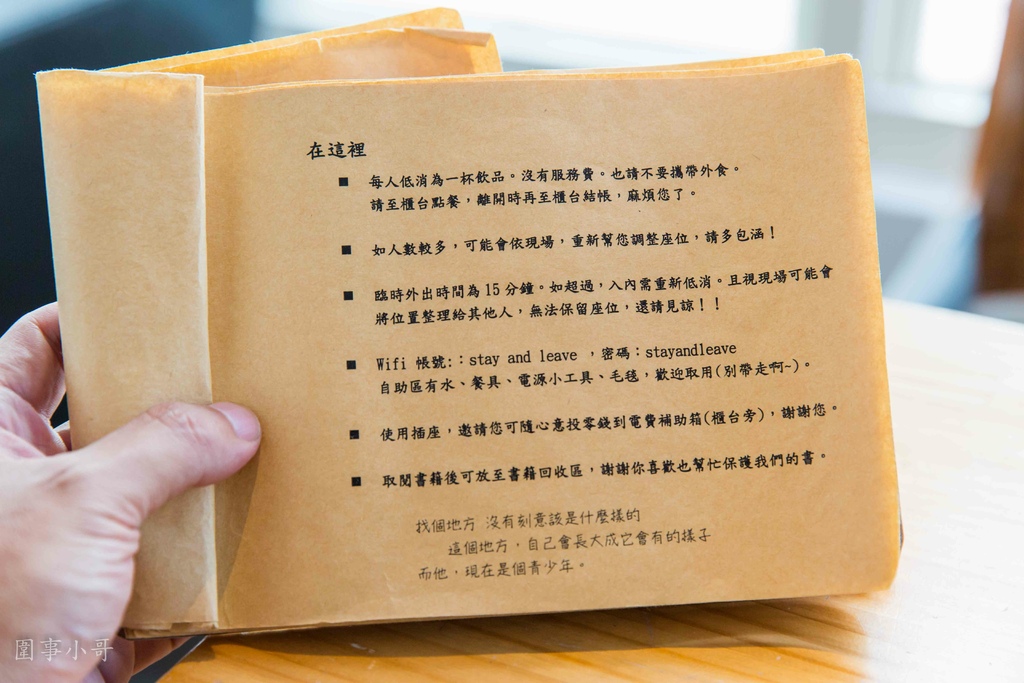 在這裡
■ 每人低消為一杯飲品。沒有服務費。也請不要攜帶外食。
請至櫃台點餐，離開時再至櫃台結帳，麻煩您了。
■ 如人數較多，可能會依現場，重新幫您調整座位，請多包涵！
■ 臨時外出時間為15分鐘。如超過，入內需重新低消。且視現場可能會
將位置整理給其他人，無法保留座位，還請見諒！！
■ Wifi 帳號:：stay and leave ，密碼：stayandleave
自助區有水、餐具、電源小工具、毛毯，歡迎取用(別帶走啊~)。
■ 使用插座，邀請您可隨心意投零錢到電費補助箱(櫃台旁)，謝謝您。
■ 取閱書籍後可放至書籍回收區，謝謝你喜歡也幫忙保護我們的書。
找個地方 沒有刻意該是什麼樣的
這個地方，自己會長大成它會有的樣子
而他，現在是個青少年。
圍事小哥